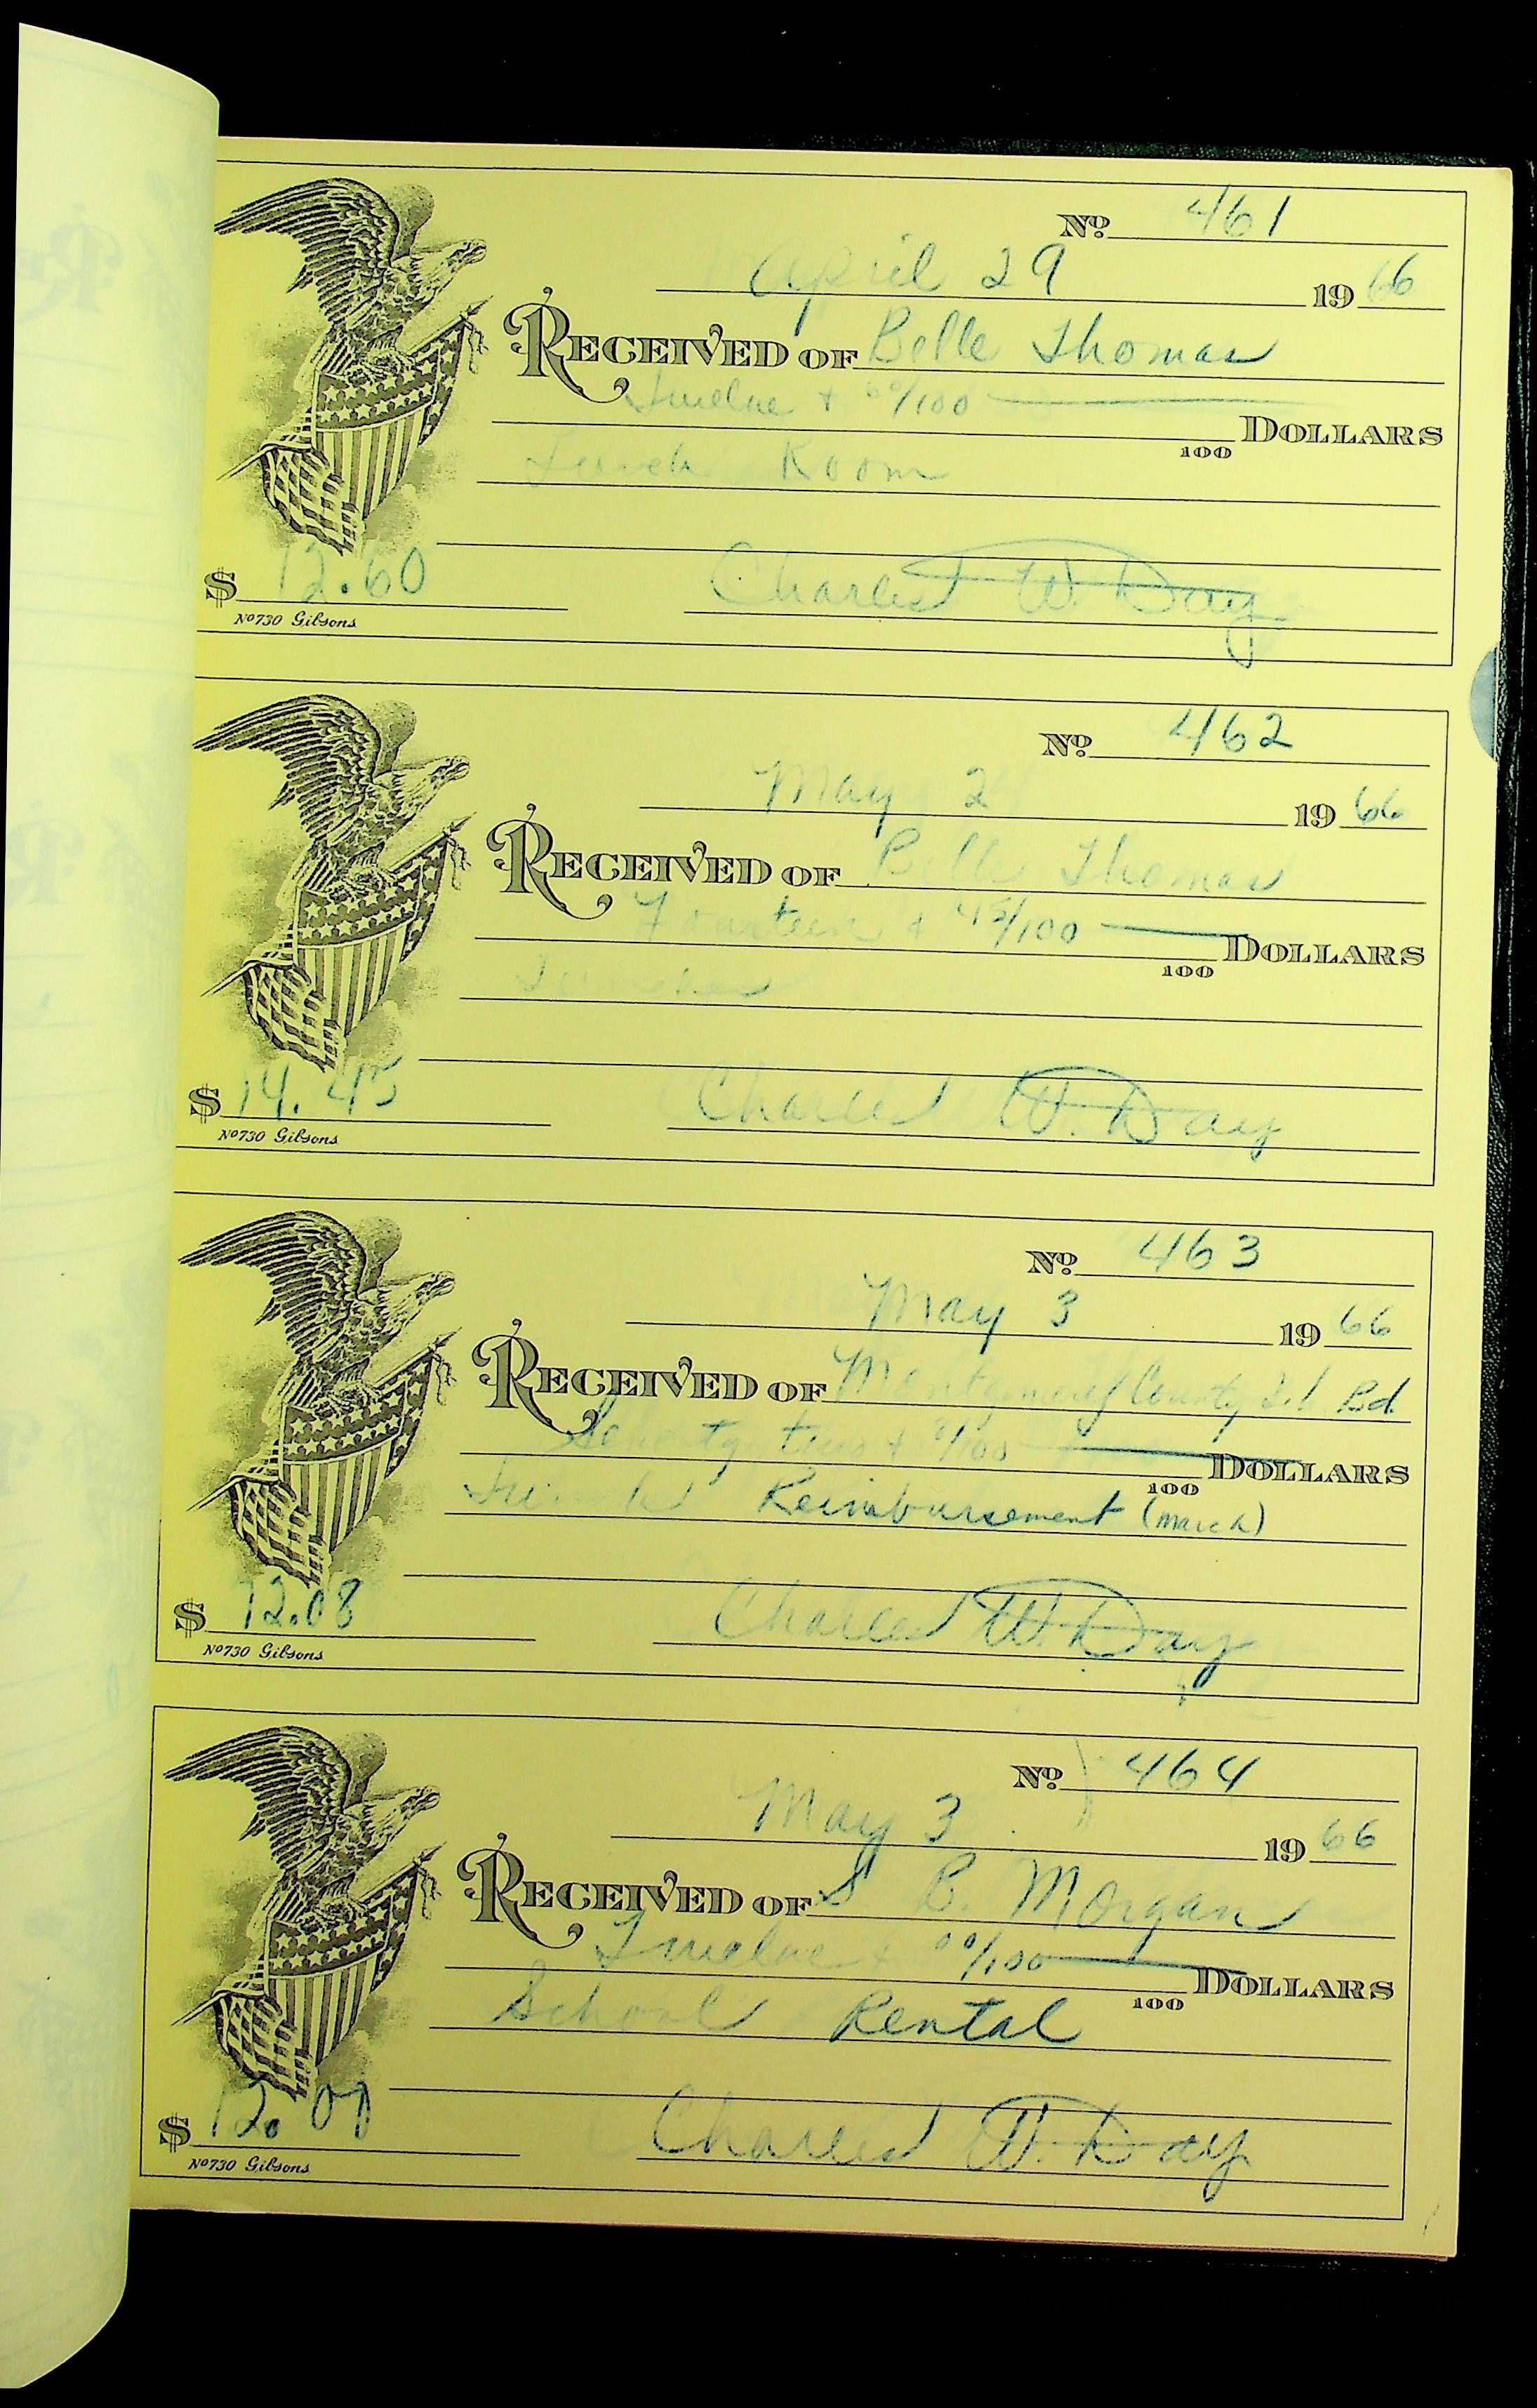 Nº 461
April 29 1966
RECEIVED OF Belle Thomas
Twelve + 60/100
100 DOLLARS
Lunch Room
$ 12.60 Charles W. Day
Nº730 Gibsons
Nº 462
May 2 1966
RECEIVED OF Belle Thomas
Fourteen + 45/100
100 DOLLARS
Lunches
$ 14.45 Charles W. Day
Nº730 Gibsons
Nº 463
May 3 1966
RECEIVED OF Montgomery County Bd.
+ 8/100
100 DOLLARS
Reimbursement (March)
$ 72.08 Charles W. Day
Nº730 Gibsons
Nº 464
May 3 1966
RECEIVED OF S B. Morgan
Twelve + 00/100
100 DOLLARS
School Rental
$ 12.00 Charles W. Day
Nº730 Gibsons